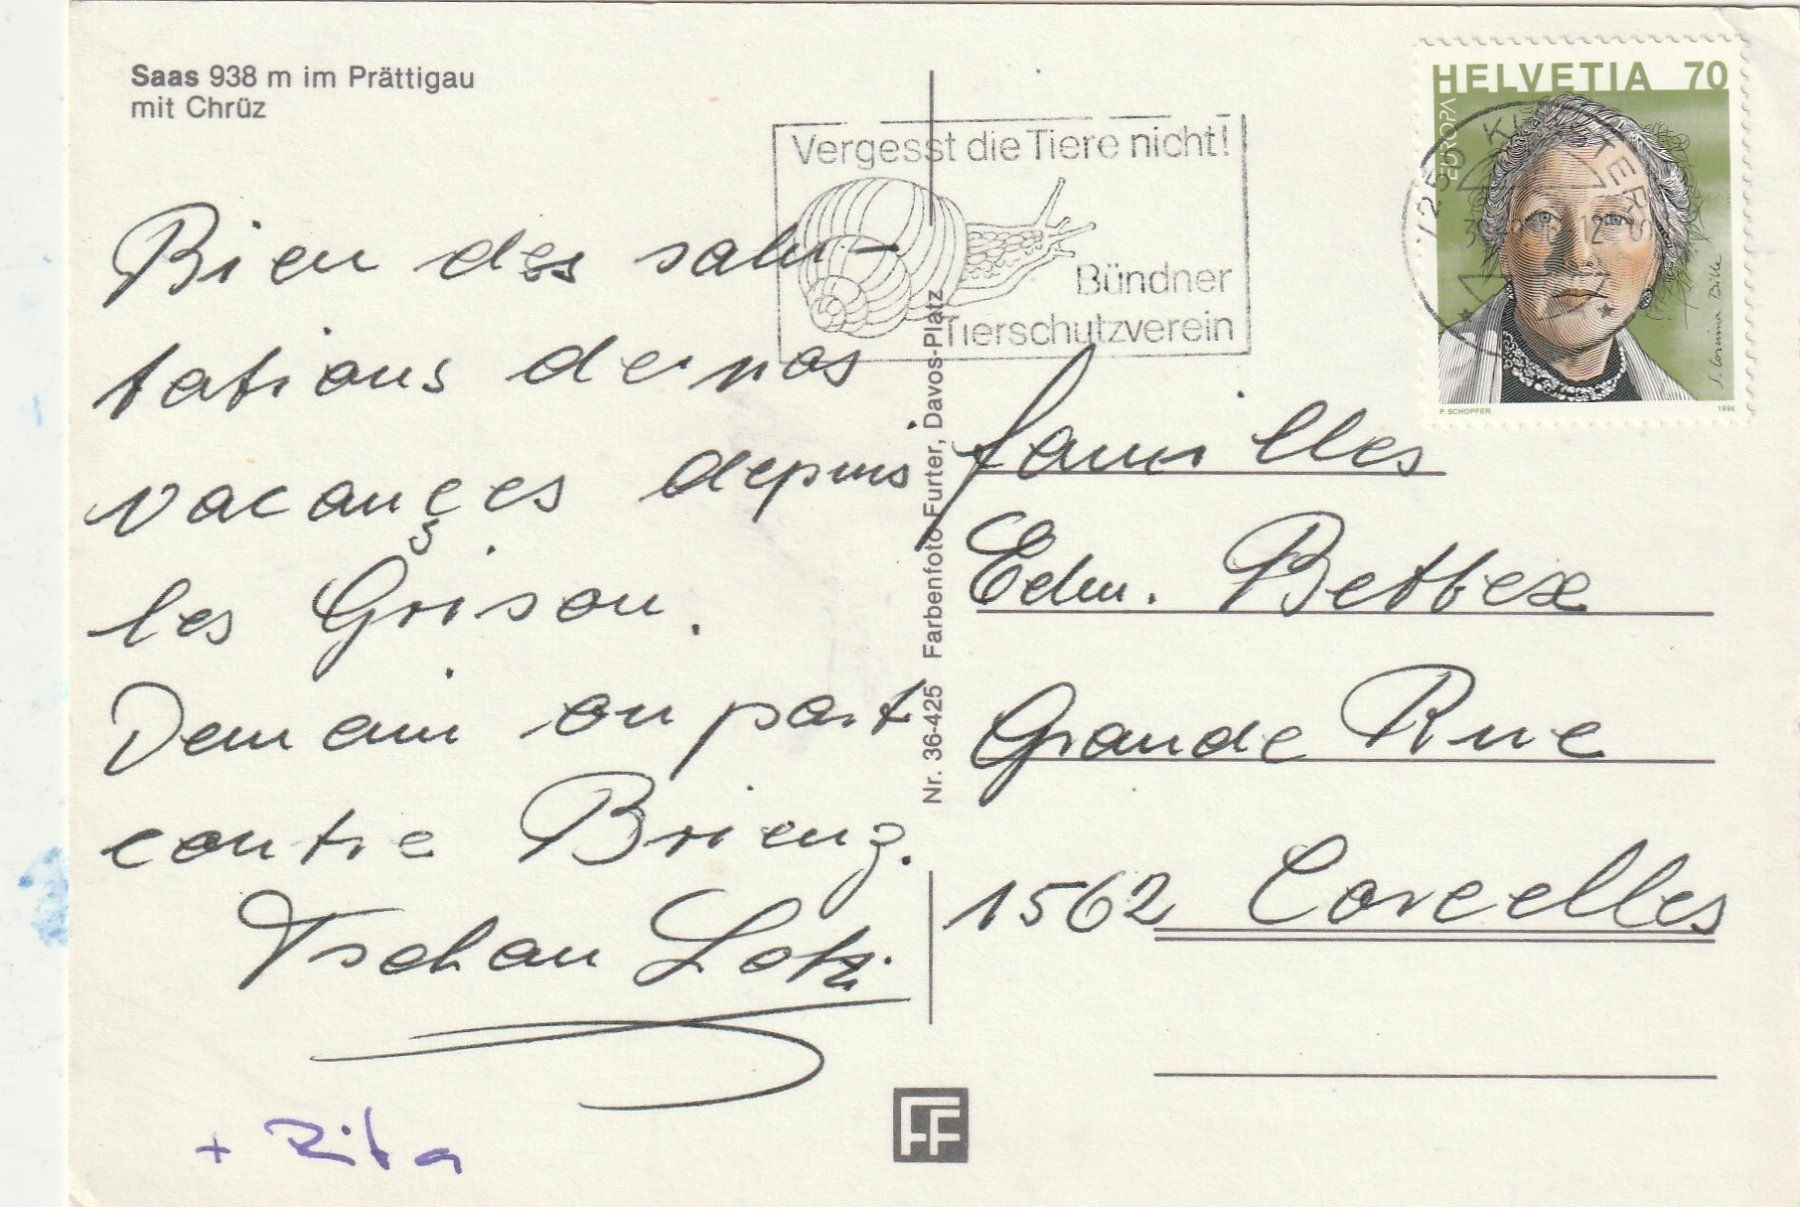 Saas 938 m im Prättigau
mit Chrüz
Vergesst die Tiere nicht!
Bündner
Tierschutzverein
HELVETIA 70
EUROPA
P. SCHOPFER
1996
Bien des salu-
tations de nos
vacançes depuis
les Grison.
Demain on part
contre Brienz.
Tschan Lotti
+ Rita
Nr. 36-425 Farbenfoto Furter, Davos-Platz
familles
Edm. Bettex
Grande Rue
1562 Corcelles
FF